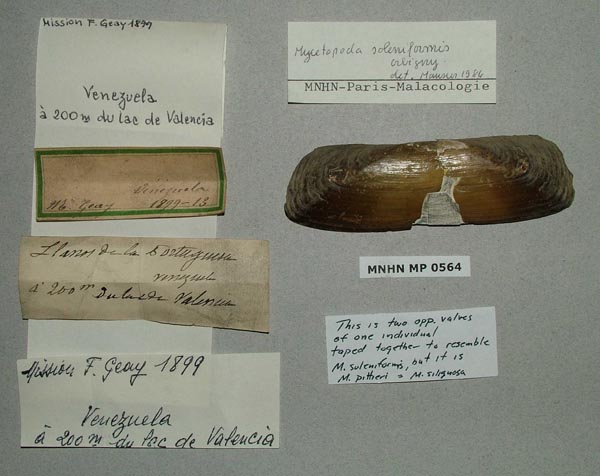 Mission F. Geay 1899
Venezuela
à 200m du lac de Valencia
Venezuela
Mr. Geay 1899-13
Llanos de la Portuguesa
venezuela
à 200m du lac de Valencia
Mission F. Geay 1899
Venezuela
à 200m du lac de Valencia
Mycetopoda soleniformis
orbigny
det. Mansur 1986
MNHN-Paris-Malacologie
MNHN MP 0564
This is two opp. valves
of one individual
taped together to resemble
M. soleniformis, but it is
M. pittieri = M. siliquosa